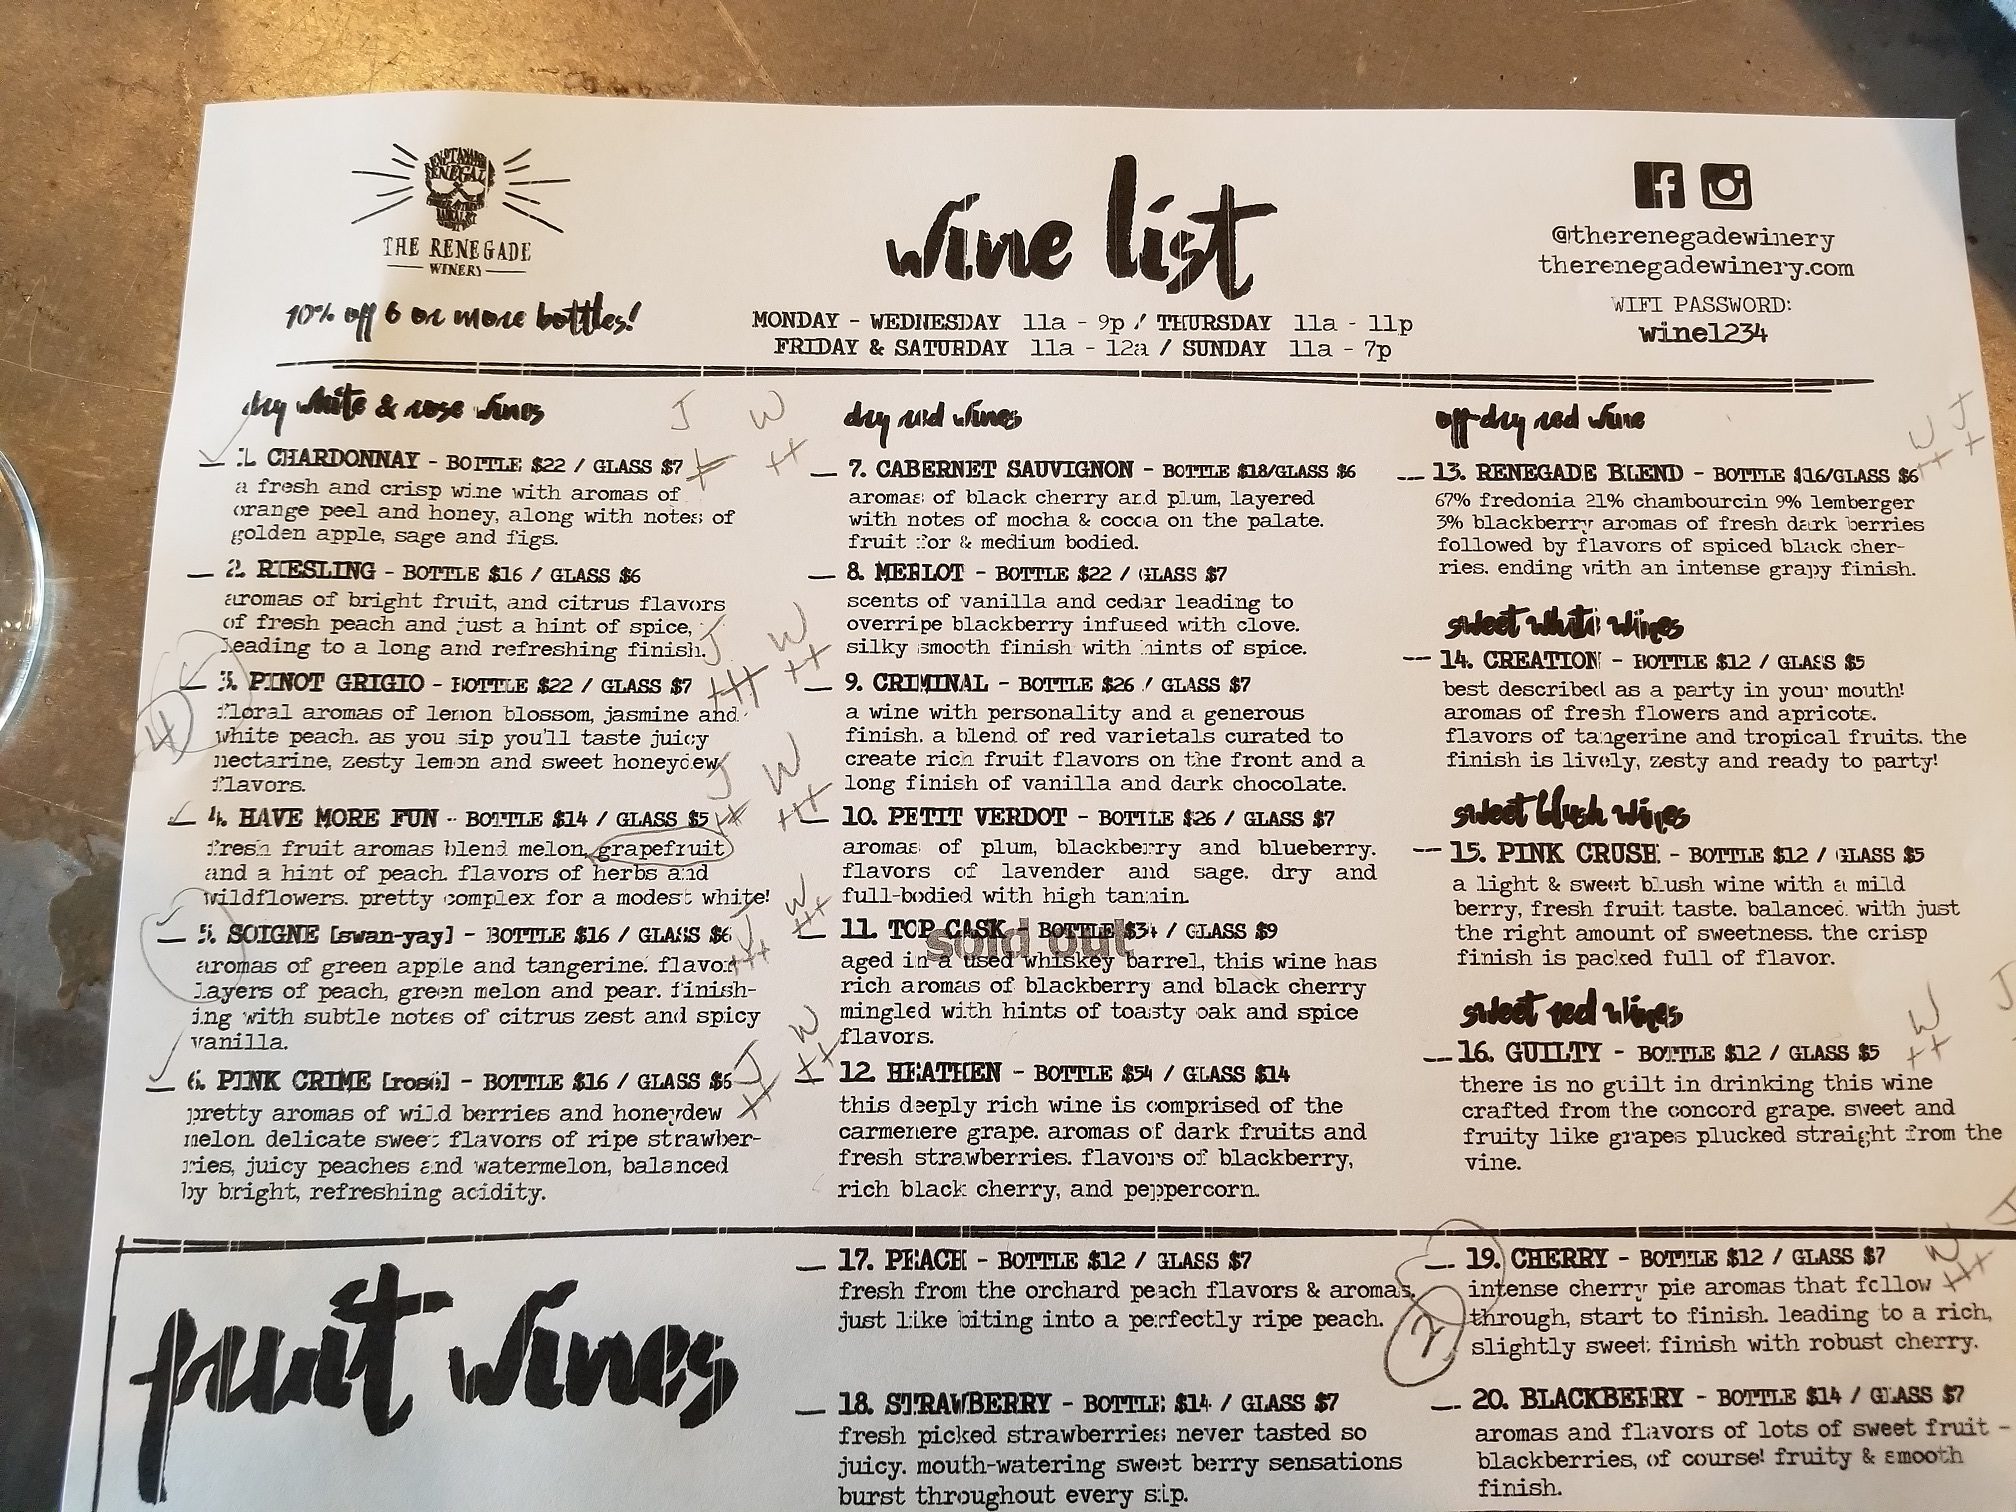 THE RENEGADE
WINERY
10% off 6 or more bottles!
wine list
MONDAY - WEDNESDAY 11a - 9p / THURSDAY 11a - 11p
FRIDAY & SATURDAY 11a - 12a / SUNDAY 11a - 7p
@therenegadewinery
therenegadewinery.com
WIFI PASSWORD:
wine1234
dry white & rose wines
J W
1. CHARDONNAY - BOTTLE $22 / GLASS $7 + ++
a fresh and crisp wine with aromas of
orange peel and honey, along with notes of
golden apple, sage and figs.
2. RIESLING - BOTTLE $16 / GLASS $6
aromas of bright fruit, and citrus flavors
of fresh peach and just a hint of spice,
leading to a long and refreshing finish.
J W
3. PINOT GRIGIO - BOTTLE $22 / GLASS $7 +++ ++
floral aromas of lemon blossom, jasmine and
4
white peach. as you sip you'll taste juicy
nectarine, zesty lemon and sweet honeydew
flavors.
J W
4. HAVE MORE FUN - BOTTLE $14 / GLASS $5 ++ +++
fresh fruit aromas blend melon, grapefruit
and a hint of peach. flavors of herbs and
wildflowers. pretty complex for a modest white!
J W
5. SOIGNE [swan-yay] - BOTTLE $16 / GLASS $6 +++ +++
aromas of green apple and tangerine. flavor
layers of peach, green melon and pear. finish-
ing with subtle notes of citrus zest and spicy
vanilla.
J W
6. PINK CRIME [rosé] - BOTTLE $16 / GLASS $6 ++ ++
pretty aromas of wild berries and honeydew
melon. delicate sweet flavors of ripe strawber-
ries, juicy peaches and watermelon, balanced
by bright, refreshing acidity.
dry red wines
7. CABERNET SAUVIGNON - BOTTLE $18/GLASS $6
aromas of black cherry and plum, layered
with notes of mocha & cocoa on the palate.
fruit for & medium bodied.
8. MERLOT - BOTTLE $22 / GLASS $7
scents of vanilla and cedar leading to
overripe blackberry infused with clove.
silky smooth finish with hints of spice.
9. CRIMINAL - BOTTLE $26 / GLASS $7
a wine with personality and a generous
finish. a blend of red varietals curated to
create rich fruit flavors on the front and a
long finish of vanilla and dark chocolate.
10. PETIT VERDOT - BOTTLE $26 / GLASS $7
aromas of plum, blackberry and blueberry.
flavors of lavender and sage. dry and
full-bodied with high tannin.
11. TOP CASK - BOTTLE $34 / GLASS $9
sold out
aged in a used whiskey barrel, this wine has
rich aromas of blackberry and black cherry
mingled with hints of toasty oak and spice
flavors.
12. HEATHEN - BOTTLE $54 / GLASS $14
this deeply rich wine is comprised of the
carmenere grape. aromas of dark fruits and
fresh strawberries. flavors of blackberry,
rich black cherry, and peppercorn.
off-dry red wine
W J
13. RENEGADE BLEND - BOTTLE $16/GLASS $6 ++ +
67% fredonia 21% chambourcin 9% lemberger
3% blackberry aromas of fresh dark berries
followed by flavors of spiced black cher-
ries. ending with an intense grapy finish.
sweet white wines
14. CREATION - BOTTLE $12 / GLASS $5
best described as a party in your mouth!
aromas of fresh flowers and apricots.
flavors of tangerine and tropical fruits. the
finish is lively, zesty and ready to party!
sweet blush wines
15. PINK CRUSH - BOTTLE $12 / GLASS $5
a light & sweet blush wine with a mild
berry, fresh fruit taste. balanced with just
the right amount of sweetness. the crisp
finish is packed full of flavor.
sweet red wines
W J
16. GUILTY - BOTTLE $12 / GLASS $5 ++
there is no guilt in drinking this wine
crafted from the concord grape. sweet and
fruity like grapes plucked straight from the
vine.
fruit wines
17. PEACH - BOTTLE $12 / GLASS $7
fresh from the orchard peach flavors & aromas.
just like biting into a perfectly ripe peach.
18. STRAWBERRY - BOTTLE $14 / GLASS $7
fresh picked strawberries never tasted so
juicy. mouth-watering sweet berry sensations
burst throughout every sip.
W J
19. CHERRY - BOTTLE $12 / GLASS $7
intense cherry pie aromas that follow +++
through, start to finish. leading to a rich,
2
slightly sweet finish with robust cherry.
20. BLACKBERRY - BOTTLE $14 / GLASS $7
aromas and flavors of lots of sweet fruit -
blackberries, of course! fruity & smooth
finish.